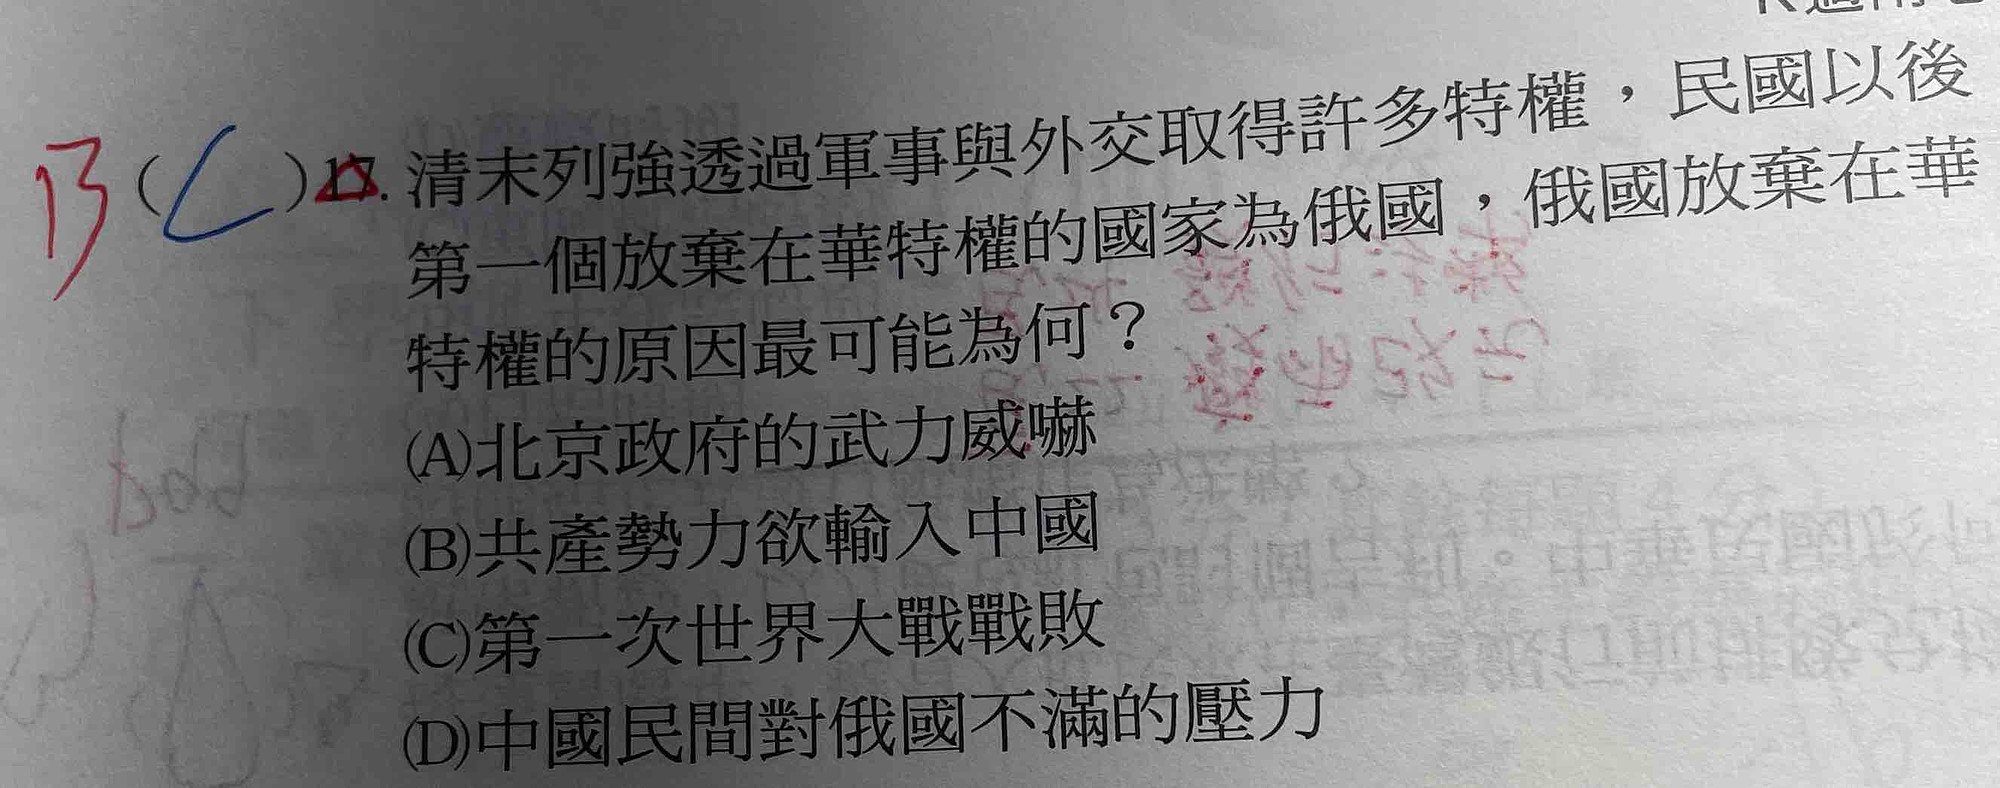 B(C)17.清末列強透過軍事與外交取得許多特權，民國以後
第一個放棄在華特權的國家為俄國，俄國放棄在華
特權的原因最可能為何？
(A)北京政府的武力威嚇
(B)共產勢力欲輸入中國
(C)第一次世界大戰戰敗
(D)中國民間對俄國不滿的壓力